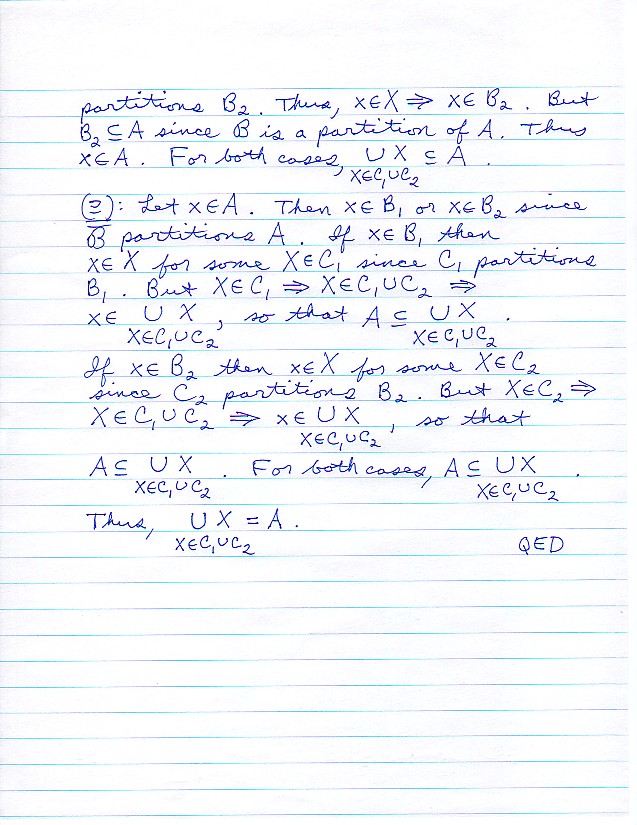 partitions B₂. Thus, x∈X ⇒ x∈B₂. But
B₂⊆A since B is a partition of A. Thus
x∈A. For both cases, ∪X ⊆ A.
X∈C₁∪C₂
(⊇): Let x∈A. Then x∈B₁ or x∈B₂ since
B partitions A. If x∈B₁ then
x∈X for some X∈C₁ since C₁ partitions
B₁. But X∈C₁ ⇒ X∈C₁∪C₂ ⇒
x∈ ∪X, so that A ⊆ ∪X.
X∈C₁∪C₂ X∈C₁∪C₂
If x∈B₂ then x∈X for some X∈C₂
since C₂ partitions B₂. But X∈C₂ ⇒
X∈C₁∪C₂ ⇒ x∈∪X, so that
X∈C₁∪C₂
A⊆ ∪X. For both cases, A⊆ ∪X.
X∈C₁∪C₂ X∈C₁∪C₂
Thus, ∪X = A.
X∈C₁∪C₂ QED